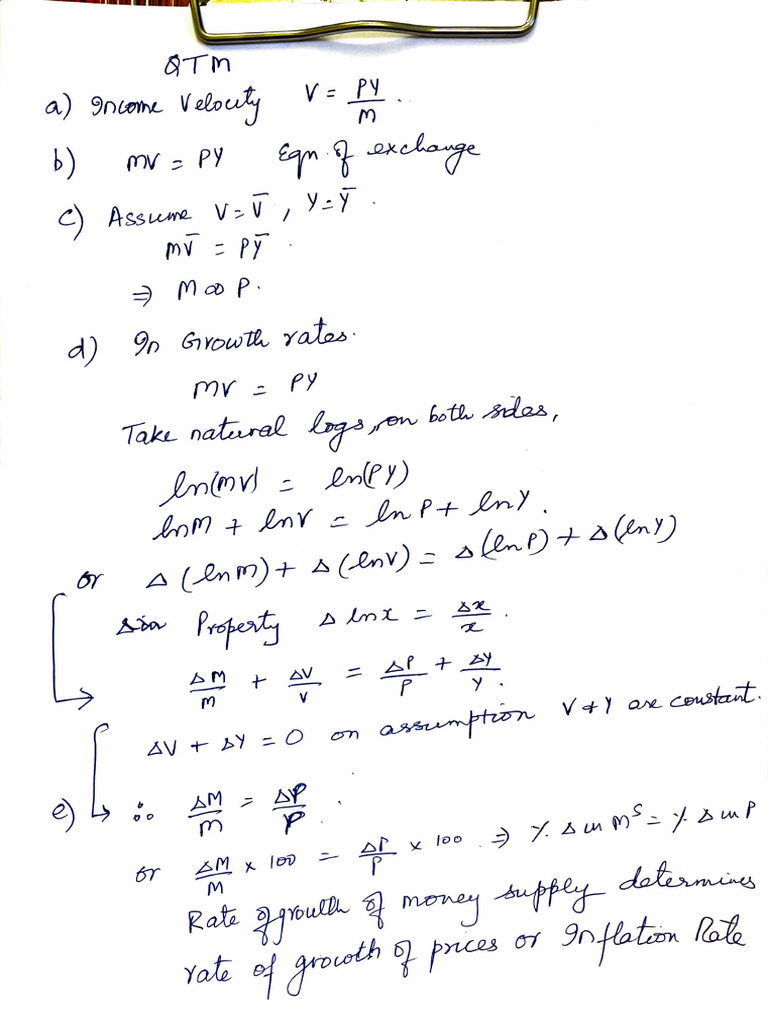 QTM
a) Income Velocity V = PY/M .
b) MV = PY Eqn. of exchange
c) Assume V = V̄ , Y = Ȳ .
MV̄ = PȲ .
⇒ M ∞ P.
d) In Growth rates.
MV = PY
Take natural logs, on both sides,
ln(MV) = ln(PY)
lnM + lnV = lnP + lnY .
or Δ(lnM) + Δ(lnV) = Δ(lnP) + Δ(lnY)
Property Δ lnx = Δx/x .
ΔM/M + ΔV/V = ΔP/P + ΔY/Y .
ΔV + ΔY = 0 on assumption V & Y are constant.
e) ∴ ΔM/M = ΔP/P .
or ΔM/M × 100 = ΔP/P × 100 ⇒ % Δ in Mˢ = % Δ in P
Rate of growth of money supply determines
rate of growth of prices or Inflation Rate